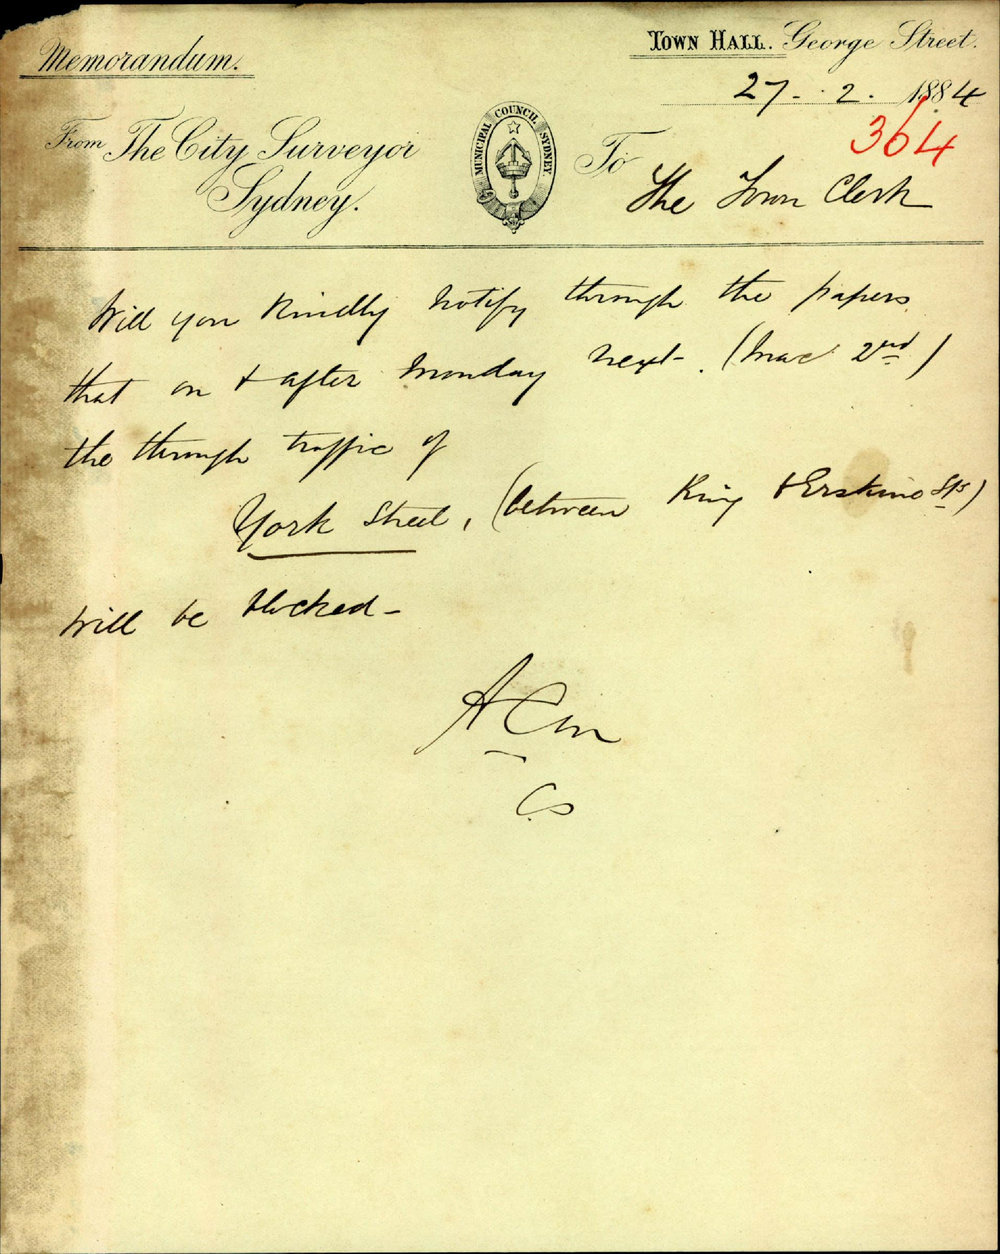 Memorandum.
TOWN HALL. George Street.
27 - 2. 1884
364
From The City Surveyor
Sydney.
MUNICIPAL COUNCIL SYDNEY
To
The Town Clerk
Will you kindly notify through the papers
that on & after Monday next. (Mar 2nd)
the through traffic of
York Street, (between King & Erskine Sts)
will be blocked -
A
CS